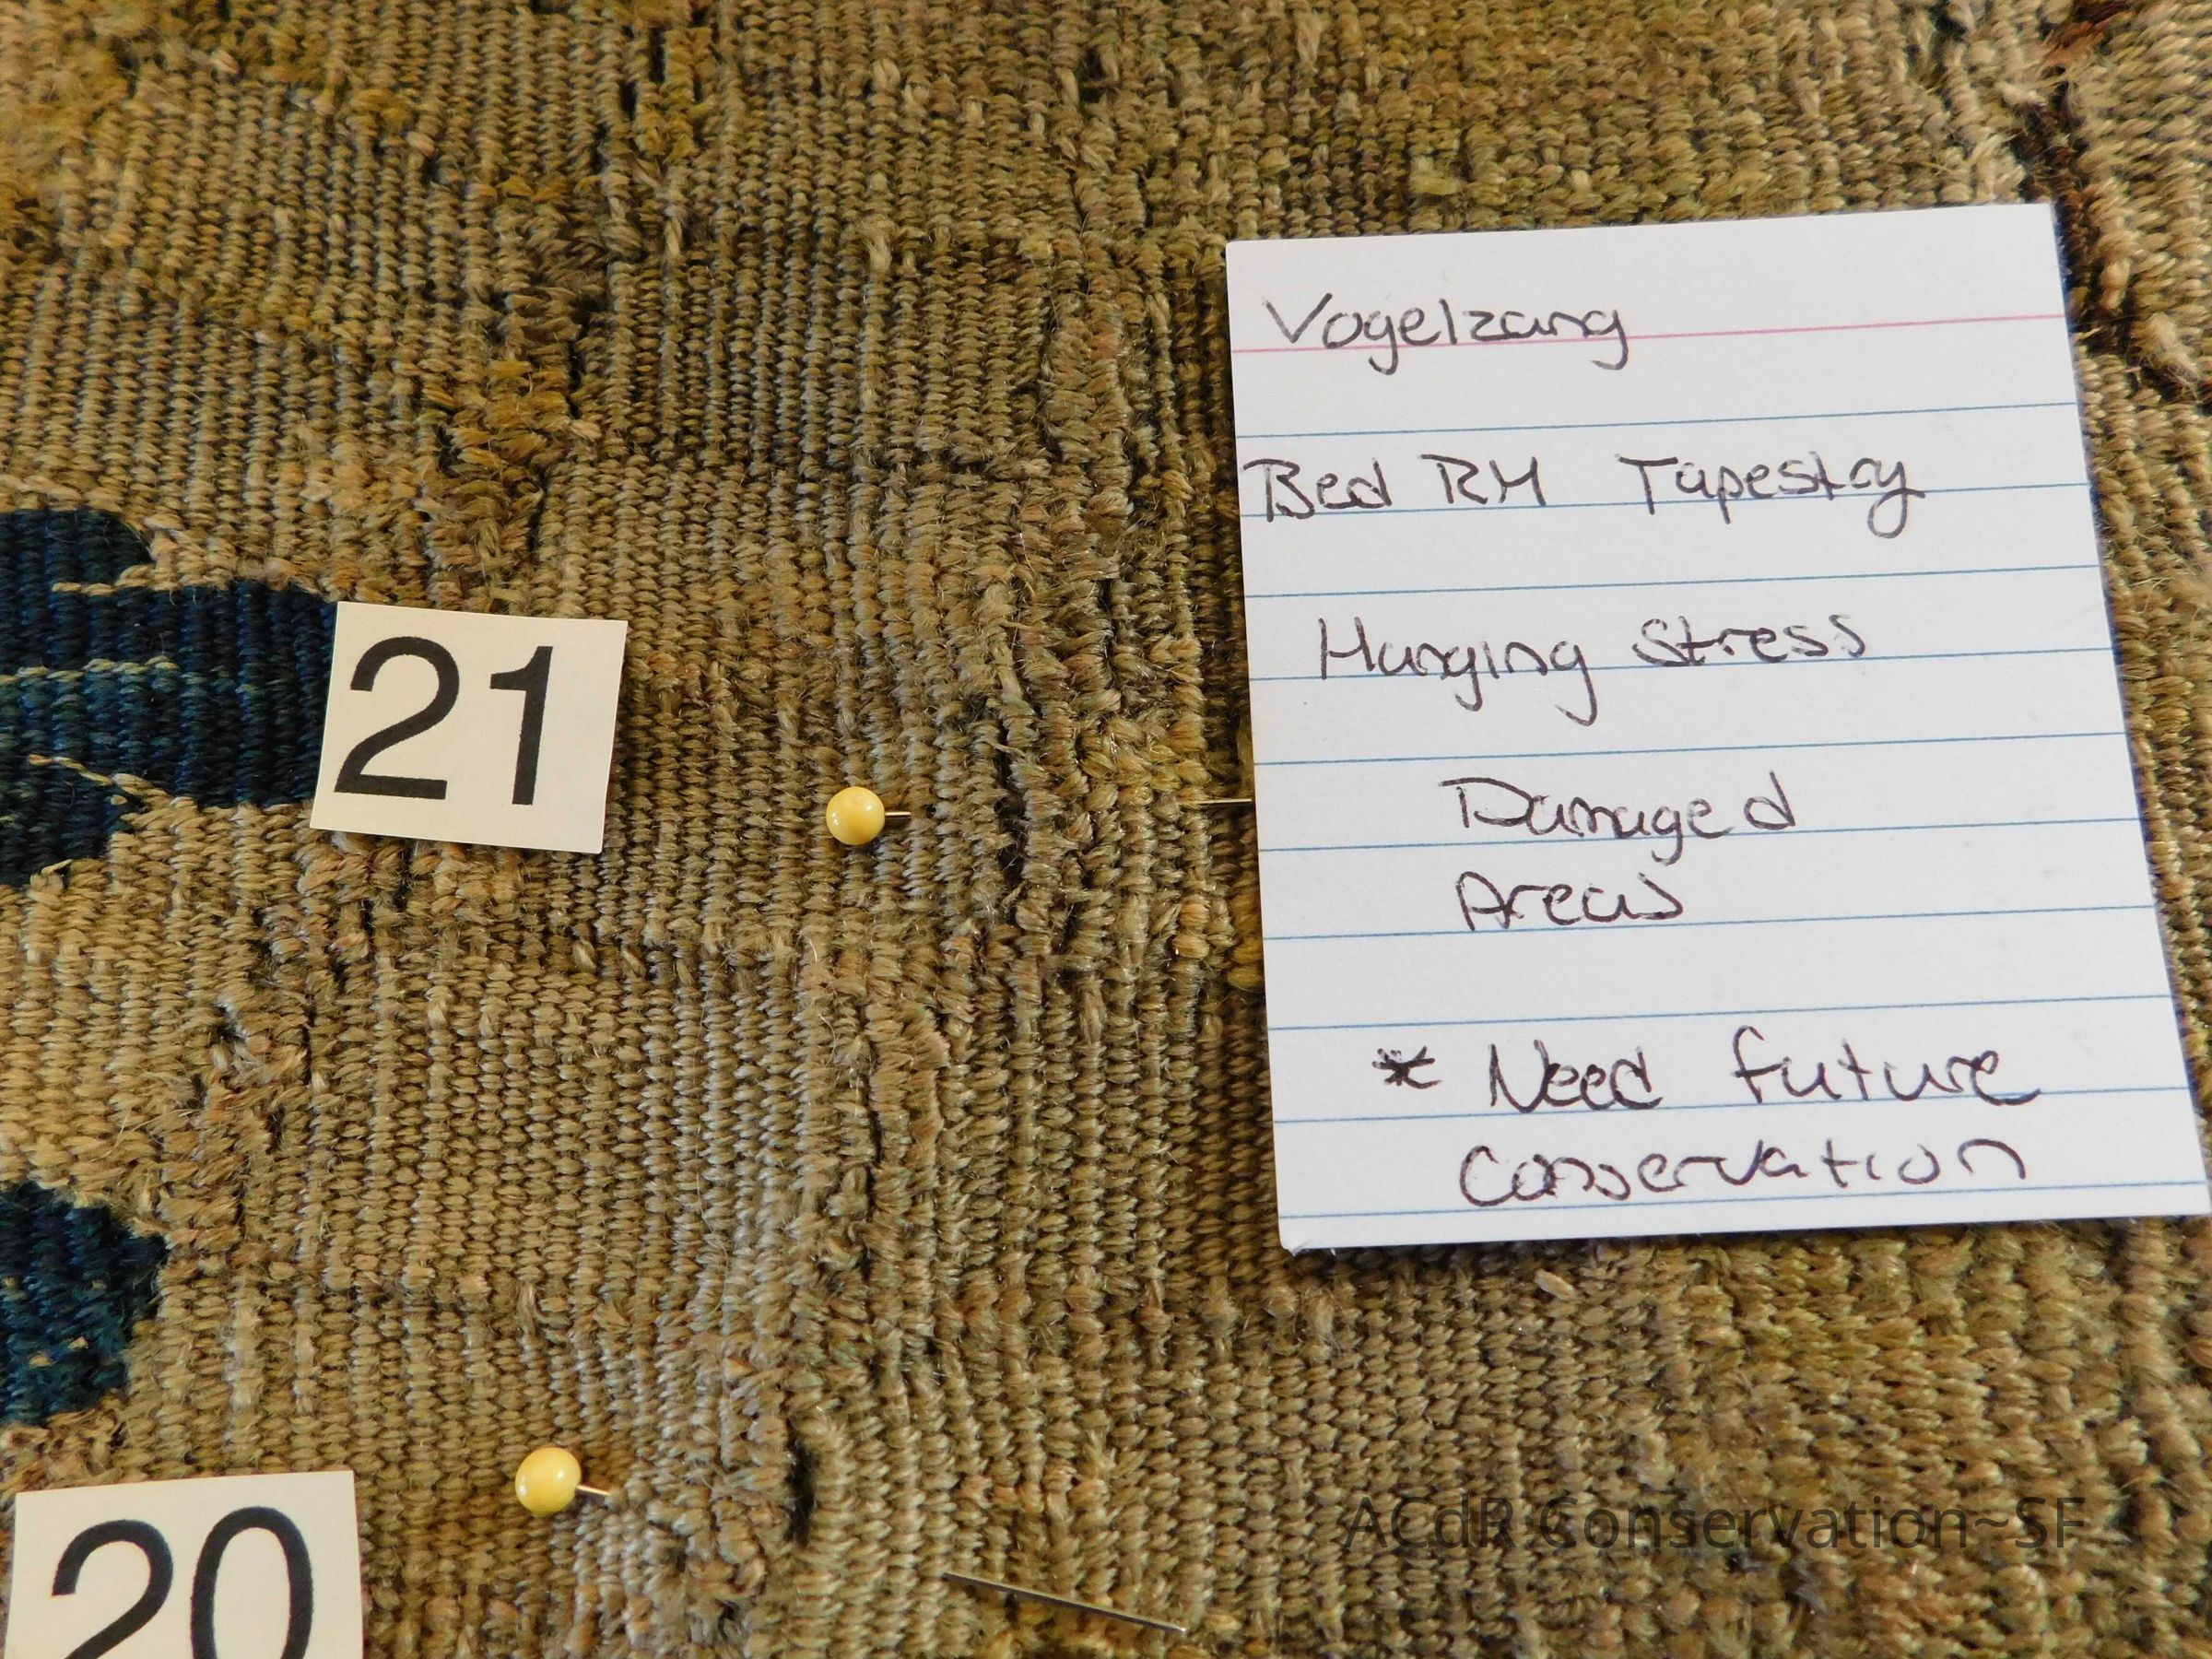 Vogelzang
Bed RM Tapestry
Hanging Stress
Damaged
Areas
* Need future
Conservation
21
20
ACdR Conservation~SF